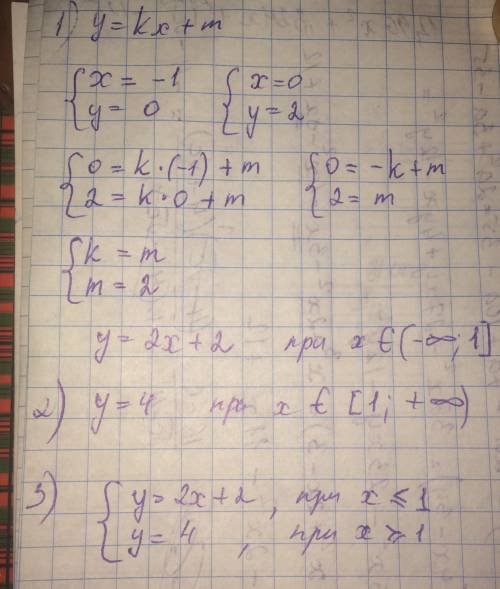 1) y = kx + m
{ x = -1 { x = 0
y = 0 y = 2
{ 0 = k · (-1) + m { 0 = -k + m
2 = k · 0 + m 2 = m
{ k = m
m = 2
y = 2x + 2 при x ∈ (-∞; 1]
2) y = 4 при x ∈ [1; +∞)
3) { y = 2x + 2, при x ≤ 1
y = 4, при x ≥ 1